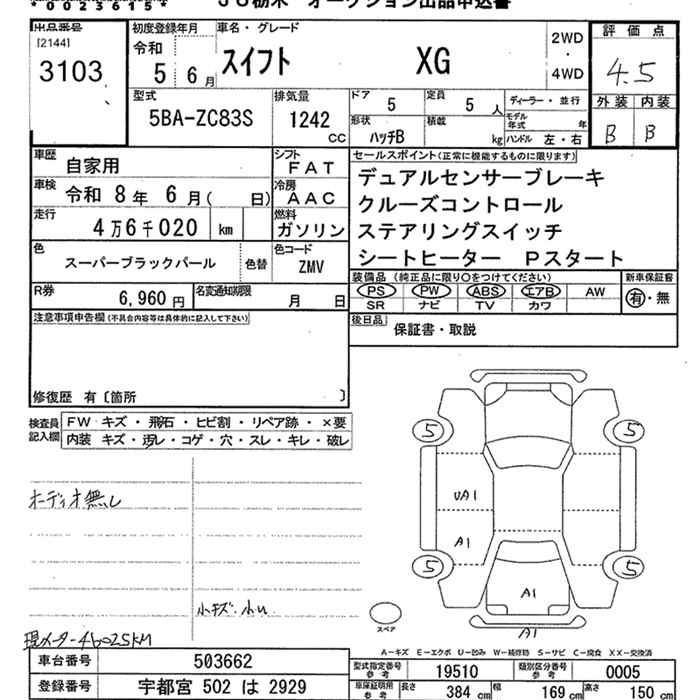 *0023615*
JU栃木 オークション出品申込書
出品番号 初度登録年月 車名・グレード 評価点
[2144] 令和 2WD
3103 5 6月 スイフト XG ・ 4.5
4WD
型式 排気量 ドア 5 定員 5人 ディーラー・並行 外装 内装
5BA-ZC83S 1242 CC 形状 ハッチB 積載 kg モデル年式 年 B B
ハンドル 左・右
車歴 自家用 シフト FAT セールスポイント(正常に機能するものに限ります)
車検 令和 8年 6月( 日) 冷房 AAC デュアルセンサーブレーキ
走行 4万6千020 km 燃料 ガソリン クルーズコントロール
ステアリングスイッチ
色 スーパーブラックパール 色替 色コード ZMV シートヒーター Pスタート
装備品(純正品に限り○をつけてください) 新車保証書
R券 6,960円 名変通知期限 月 日 PS PW ABS エアB AW 有・無
SR ナビ TV カワ
注意事項申告欄(不具合内容等は具体的に記入して下さい) 後日品 保証書・取説
修復歴 有〔箇所 〕
検査員記入欄 FW キズ・飛石・ヒビ割・リペア跡・×要
内装 キズ・汚レ・コゲ・穴・スレ・キレ・破レ
5 5
オーディオ無し UA1
A1
5 5
A1
小キズ・小U
スペア A1
現メーター46025KM
A-キズ E-エクボ U-凹み W-補修跡 S-サビ C-腐食 XX-交換済
車台番号 503662 型式指定番号 参考 19510 類別区分番号 参考 0005
登録番号 宇都宮 502 は 2929 車庫証明用 参考 長さ 384 cm 幅 169 cm 高さ 150 cm